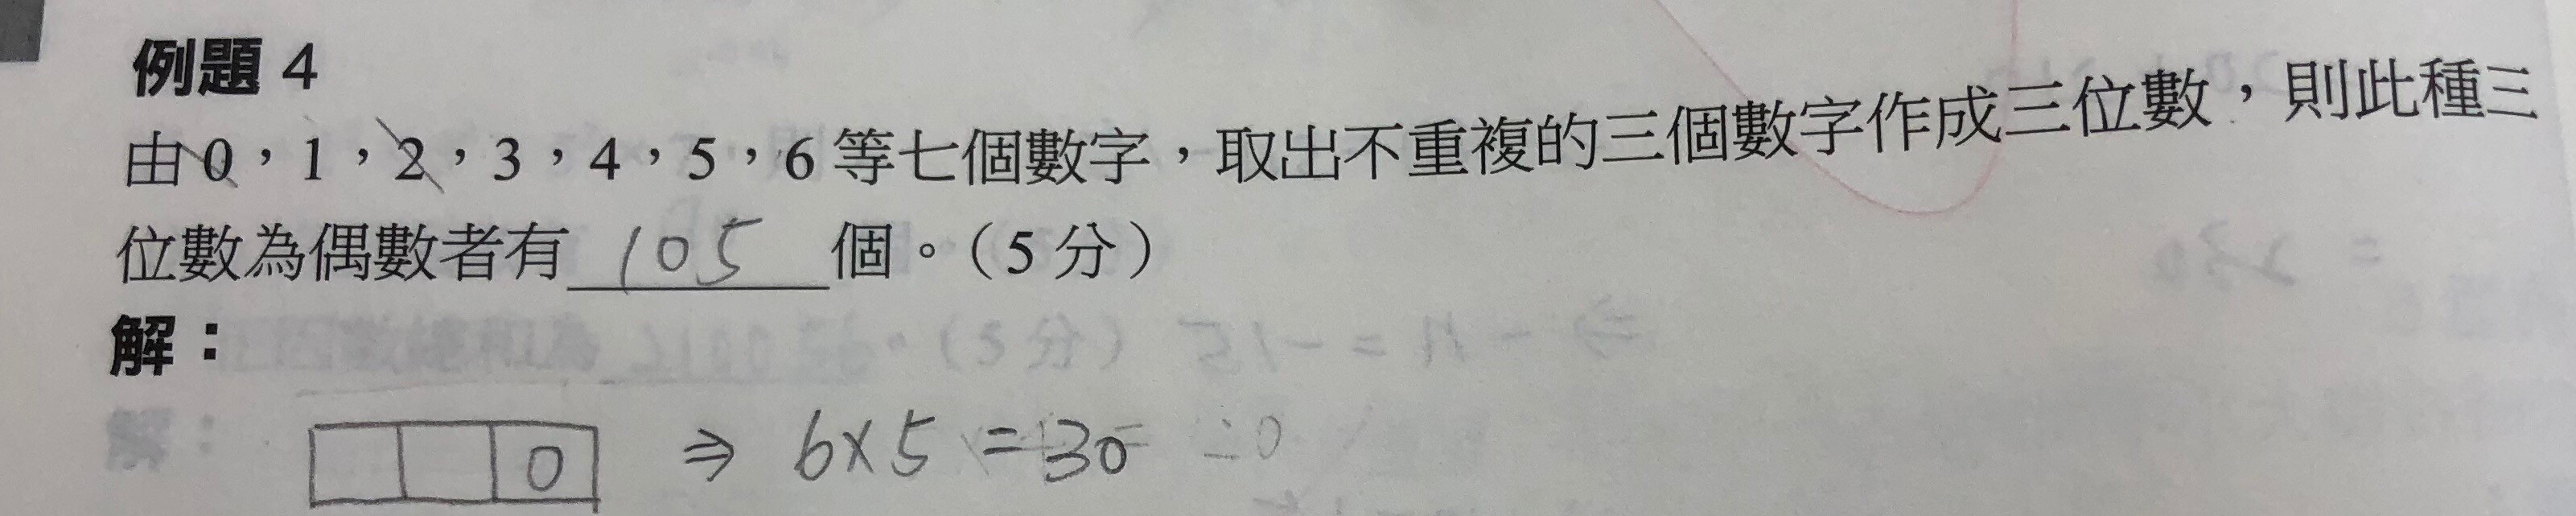 例題 4
由 0，1，2，3，4，5，6 等七個數字，取出不重複的三個數字作成三位數，則此種三
位數為偶數者有 105 個。（5 分）
解：
0 ⇒ 6×5 = 30